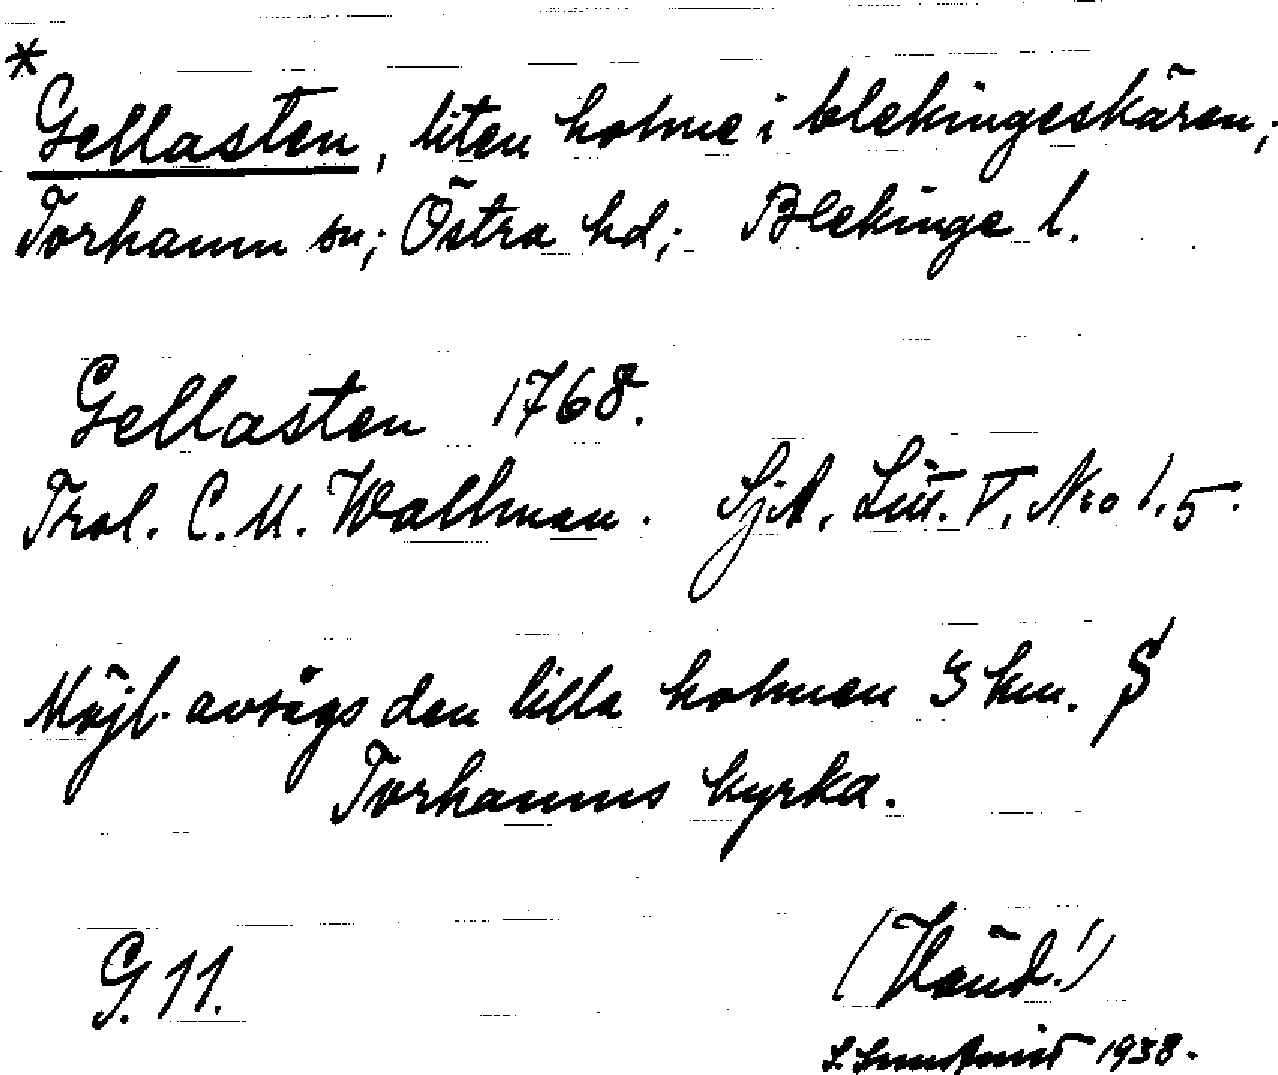 * Gellasten, liten holme i blekingeskären;
Torhamn sn; Östra hd; Blekinge l.
Gellasten 1768.
Trol. C. M. Wallman. SjA, Litt. V. No 1.5.
Möjl. avsågs den lilla holmen 3 km. S
Torhamns kyrka.
G. 11.
1938.